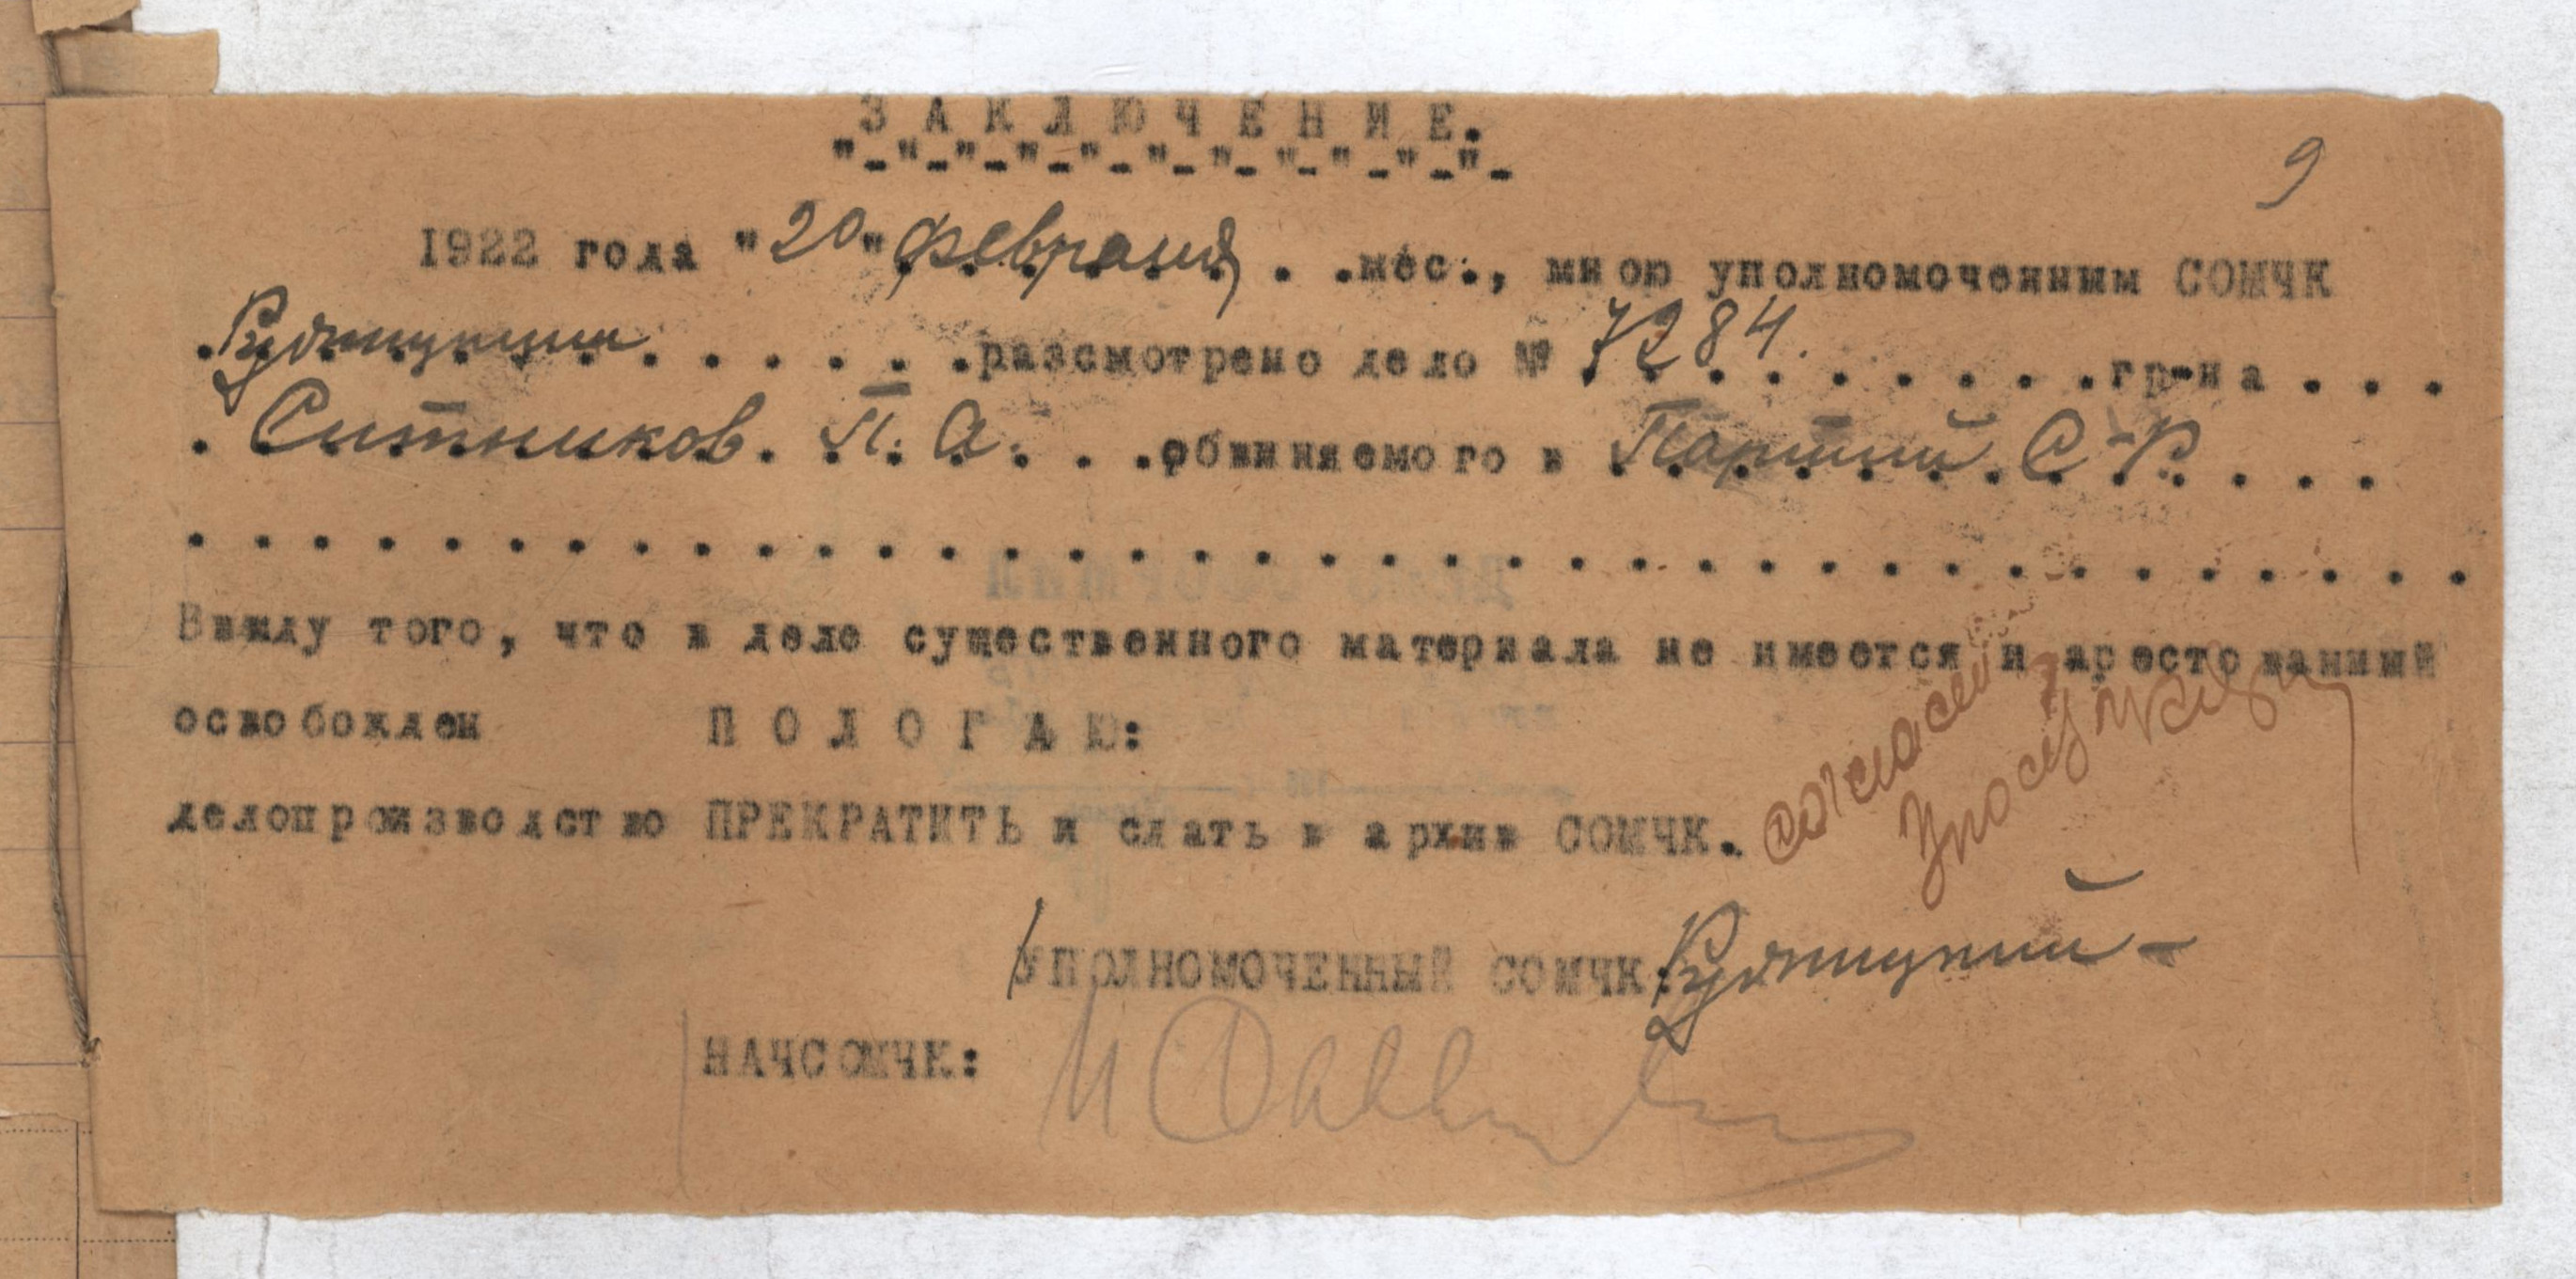 ЗАКЛЮЧЕНИЕ.
"-"-"-"-"-"-"-"-"-"-"-
9
1922 года "20" февраля . .мес., мною уполномоченным СОМЧК
. . . . . .разсмотрено дело № 7284. . . . . . . .гр-на . . .
. Ситников. П. А. . . .обвиняемого в Партии С-Р. . . .
. . . . . . . . . . . . . . . . . . . . . . . . . . . . . . . . . . . . .
Ввиду того, что в деле существенного материала не имеется и арестованный
освобожден ПОЛОГАЮ:
делопроизводство ПРЕКРАТИТЬ и сдать в архив СОМЧК.
согласен
УПОЛНОМОЧЕННЫЙ СОМЧК:
НАЧСОМЧК: